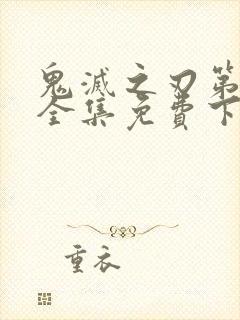 鬼滅之刃第
全集免費下
重衣